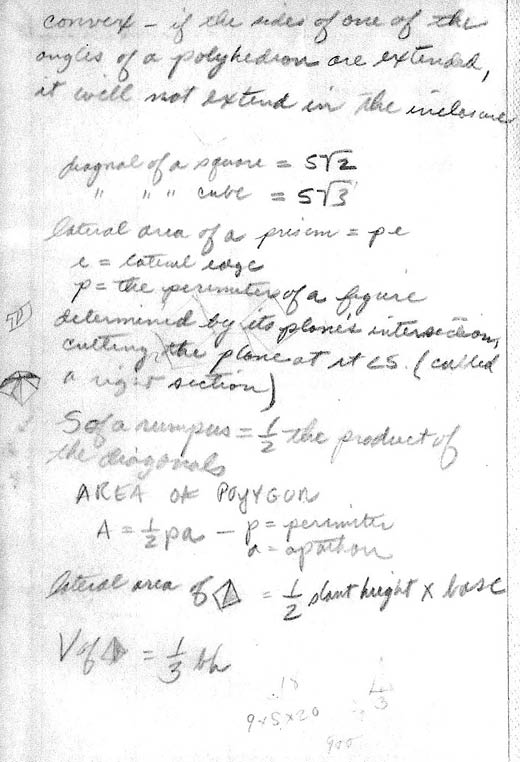 convex - if the sides of one of the
angles of a polyhedron are extended,
it will not extend in the inclosure
diagnal of a square = 5√2
" " " cube = 5√3
lateral area of a prism = pe
e = lateral edge
p = the perimeter of a figure
determined by its planes intersection,
cutting the plane at rt ∠S. (called
a right section)
S of a rumpus = 1/2 the product of
the diagonals
AREA OF POlYGON
A = 1/2 pa - p = perimeter
a = apothem
lateral area of = 1/2 slant height x base
V of = 1/3 bh
18
9x5x20
1/3
900